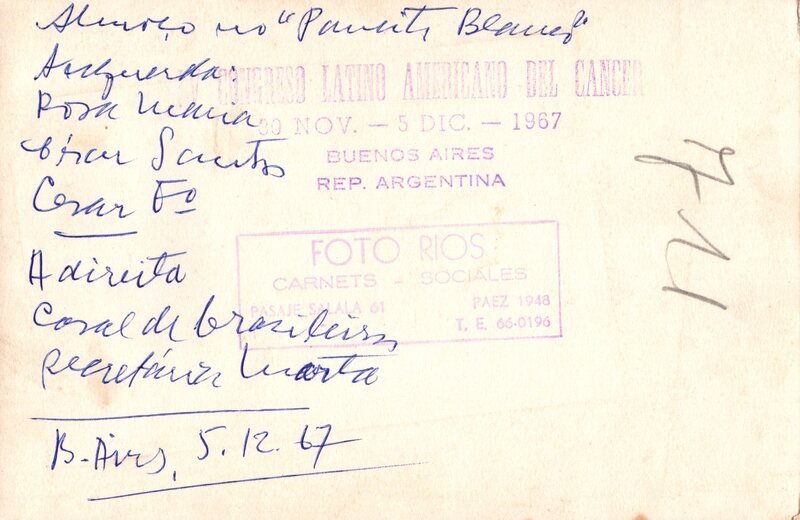 Almoço no "Pancita Blanca"
A esquerda:
Rosa Maria
César Santos
Cesar Fº
A direita
Casal de brasileiros
secretária Marta
B. Aires, 5.12.67
CONGRESO LATINO AMERICANO DEL CANCER
30 NOV. — 5 DIC. — 1967
BUENOS AIRES
REP. ARGENTINA
FOTO RIOS
CARNETS - SOCIALES
PASAJE SALALA 61 PAEZ 1948
T. E. 66-0196